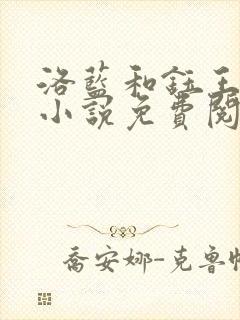 洛藍和鈺王
小說免費閱
喬安娜-克魯